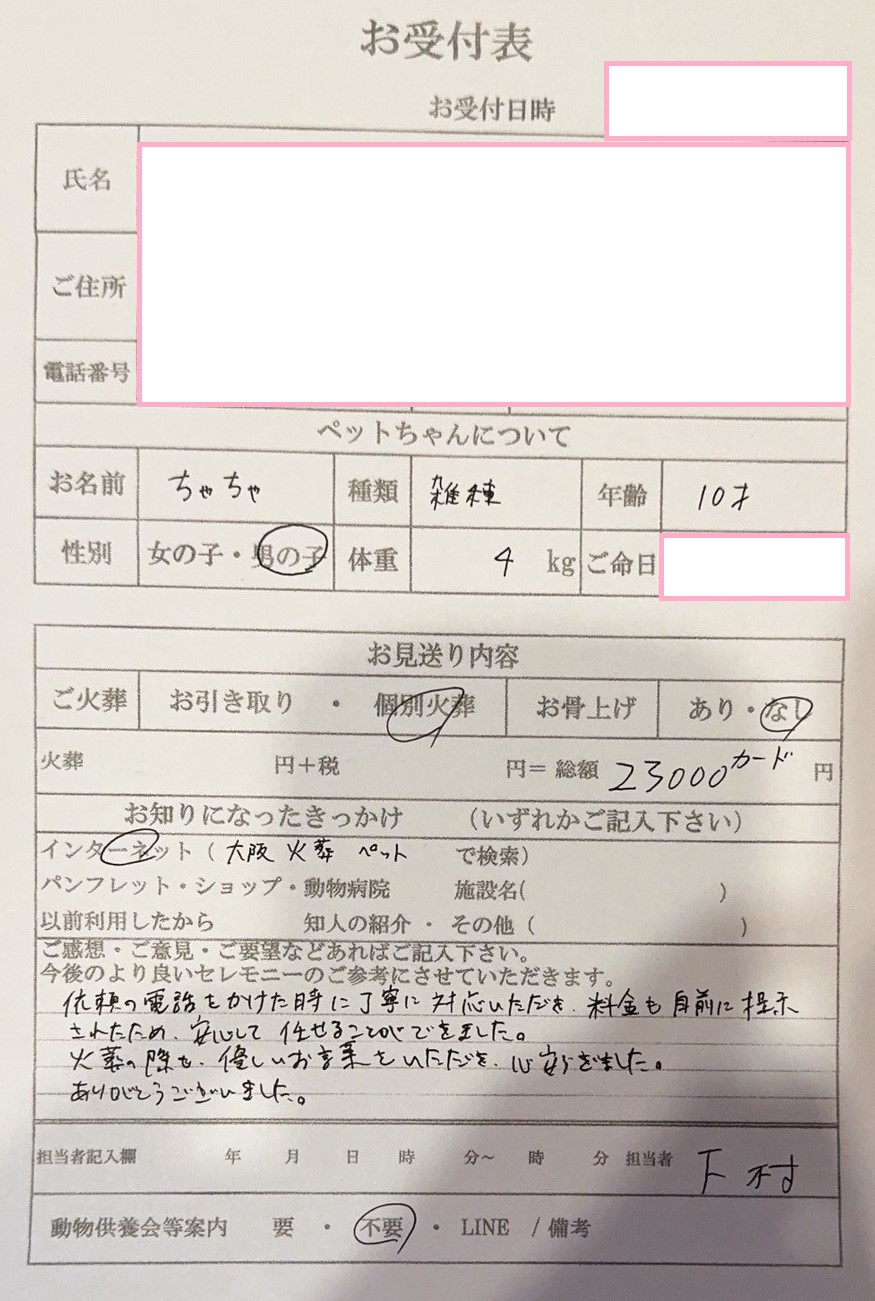 お受付表
お受付日時
氏名
ご住所
電話番号
ペットちゃんについて
お名前 ちゃちゃ 種類 雑種 年齢 10才
性別 女の子・男の子 体重 4 kg ご命日
お見送り内容
ご火葬 お引き取り ・ 個別火葬 お骨上げ あり・なし
火葬 円+税 円= 総額 23000カード 円
お知りになったきっかけ (いずれかご記入下さい)
インターネット( 大阪 火葬 ペット で検索)
パンフレット・ショップ・動物病院 施設名( )
以前利用したから 知人の紹介 ・ その他 ( )
ご感想・ご意見・ご要望などあればご記入下さい。
今後のより良いセレモニーのご参考にさせていただきます。
依頼の電話をかけた時に丁寧に対応いただき、料金も自前に提示
されたため、安心して任せることができました。
火葬の際も、優しいお言葉をいただき、心安らぎました。
ありがとうございました。
担当者記入欄 年 月 日 時 分~ 時 分 担当者 下村
動物供養会等案内 要 ・ 不要 ・ LINE / 備考